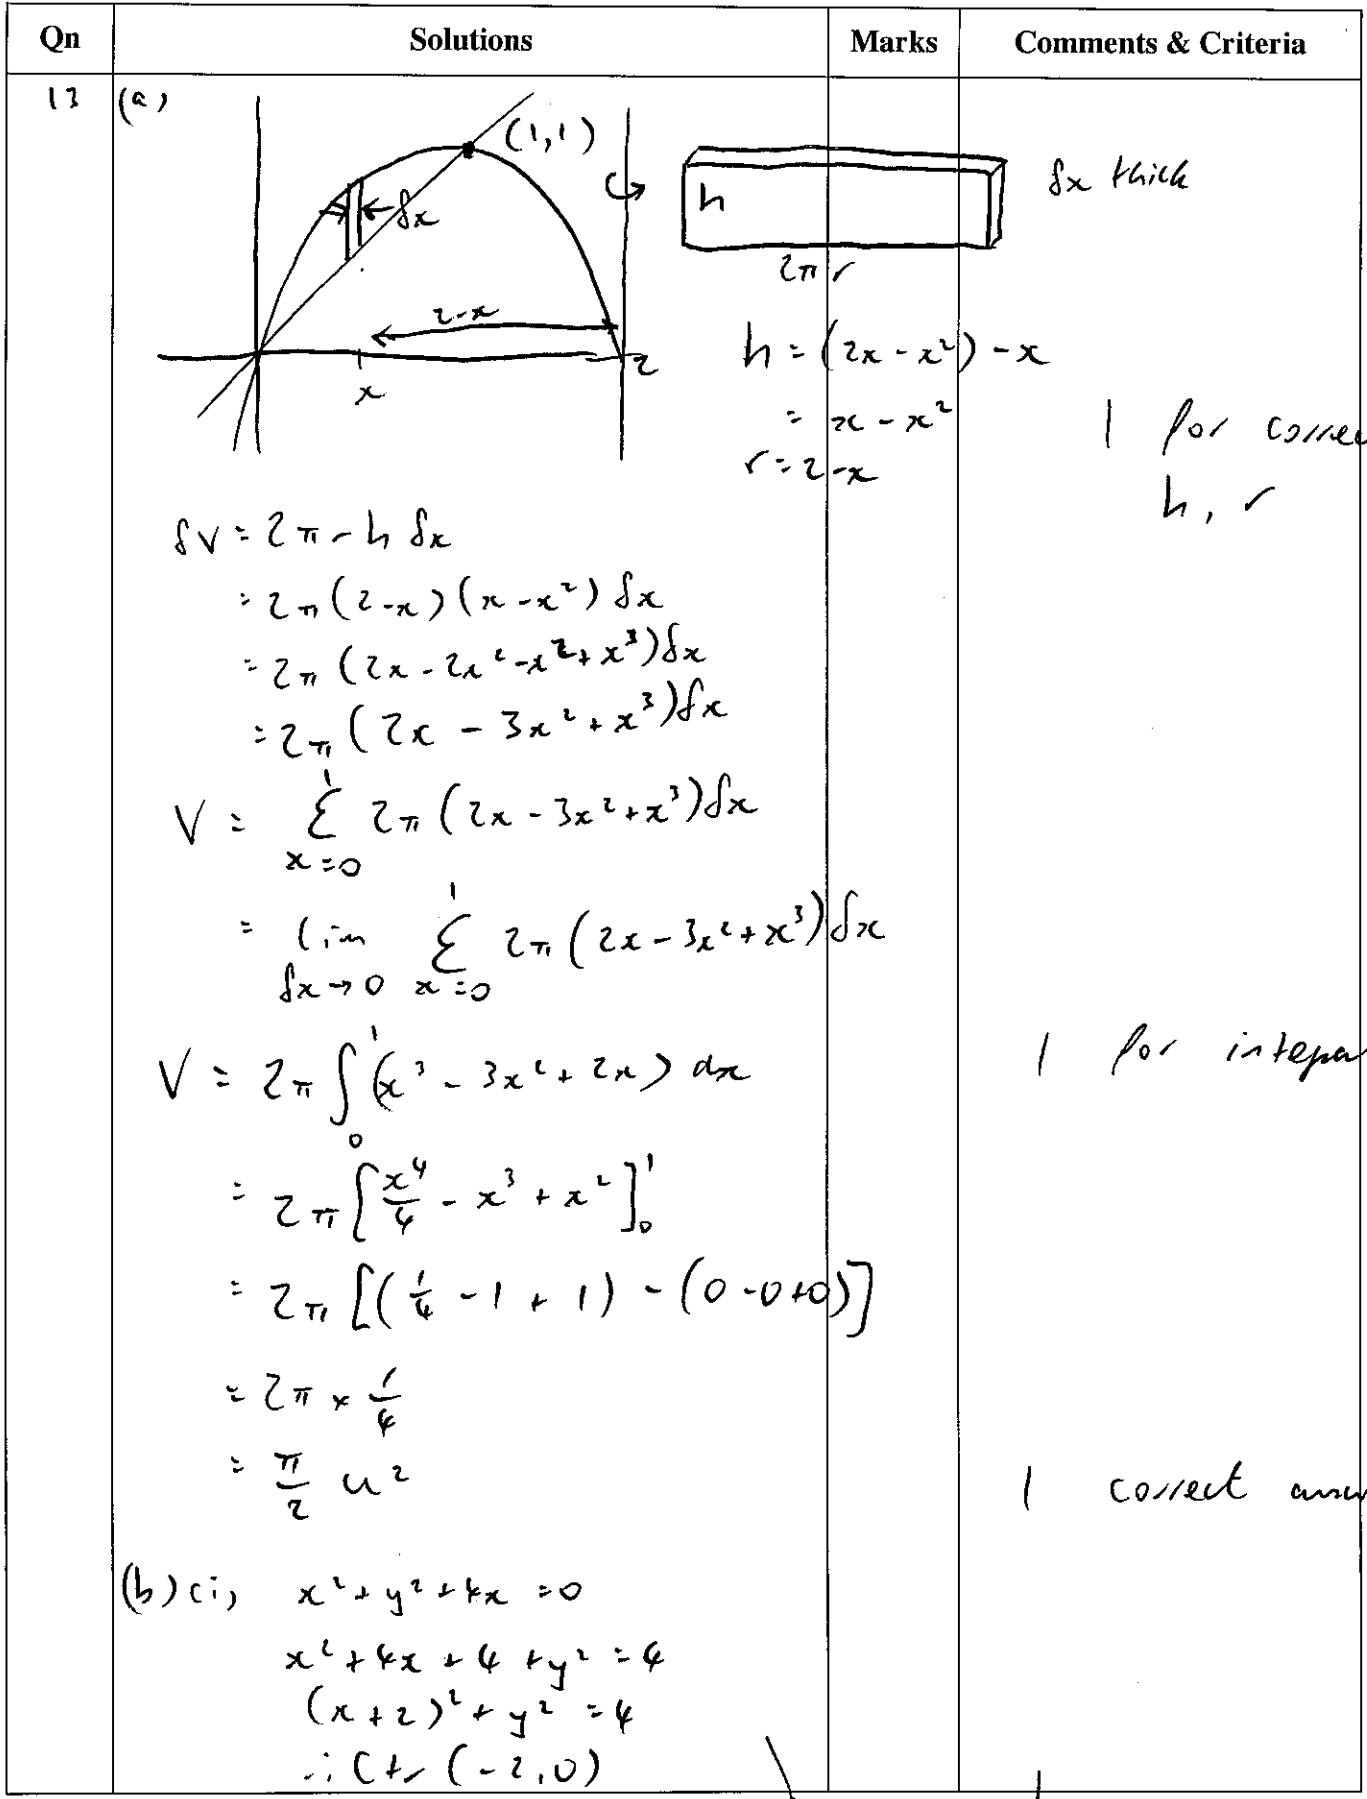 Qn Solutions Marks Comments & Criteria
13 (a)
(1,1)
δx
2-x
x
2
h
δx thick
2πr
h = (2x - x²) - x
= x - x²
r = 2-x
1 for
h, r
δV = 2πrh δx
= 2π(2-x)(x-x²) δx
= 2π(2x - 2x² - x² + x³)δx
= 2π(2x - 3x² + x³)δx
V = Σ_{x=0}^{1} 2π(2x - 3x² + x³)δx
= lim_{δx→0} Σ_{x=0}^{1} 2π(2x - 3x² + x³)δx
V = 2π ∫_0^1 (x³ - 3x² + 2x) dx
1 for
= 2π[x⁴/4 - x³ + x²]_0^1
= 2π[(1/4 - 1 + 1) - (0-0+0)]
= 2π × 1/4
= π/2 u²
1 correct
(b) (i) x² + y² + 4x = 0
x² + 4x + 4 + y² = 4
(x+2)² + y² = 4
∴ Ctr (-2,0)